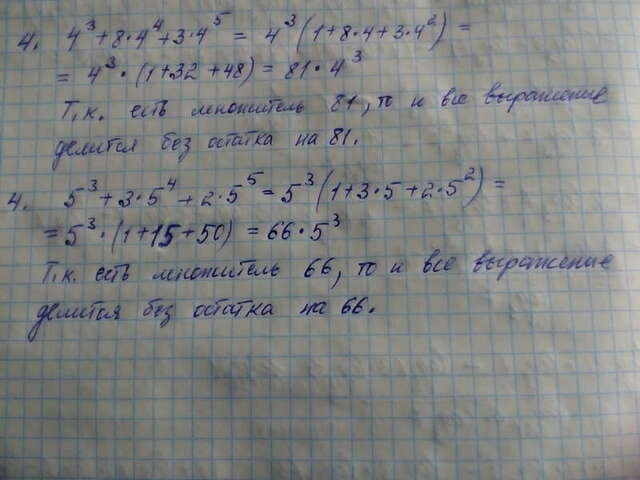 4. 4³+8·4⁴+3·4⁵ = 4³(1+8·4+3·4²) =
= 4³·(1+32+48) = 81·4³
Т.к. есть множитель 81, то и все выражение
делится без остатка на 81.
4. 5³+3·5⁴+2·5⁵ = 5³(1+3·5+2·5²) =
= 5³·(1+15+50) = 66·5³
Т.к. есть множитель 66, то и все выражение
делится без остатка на 66.